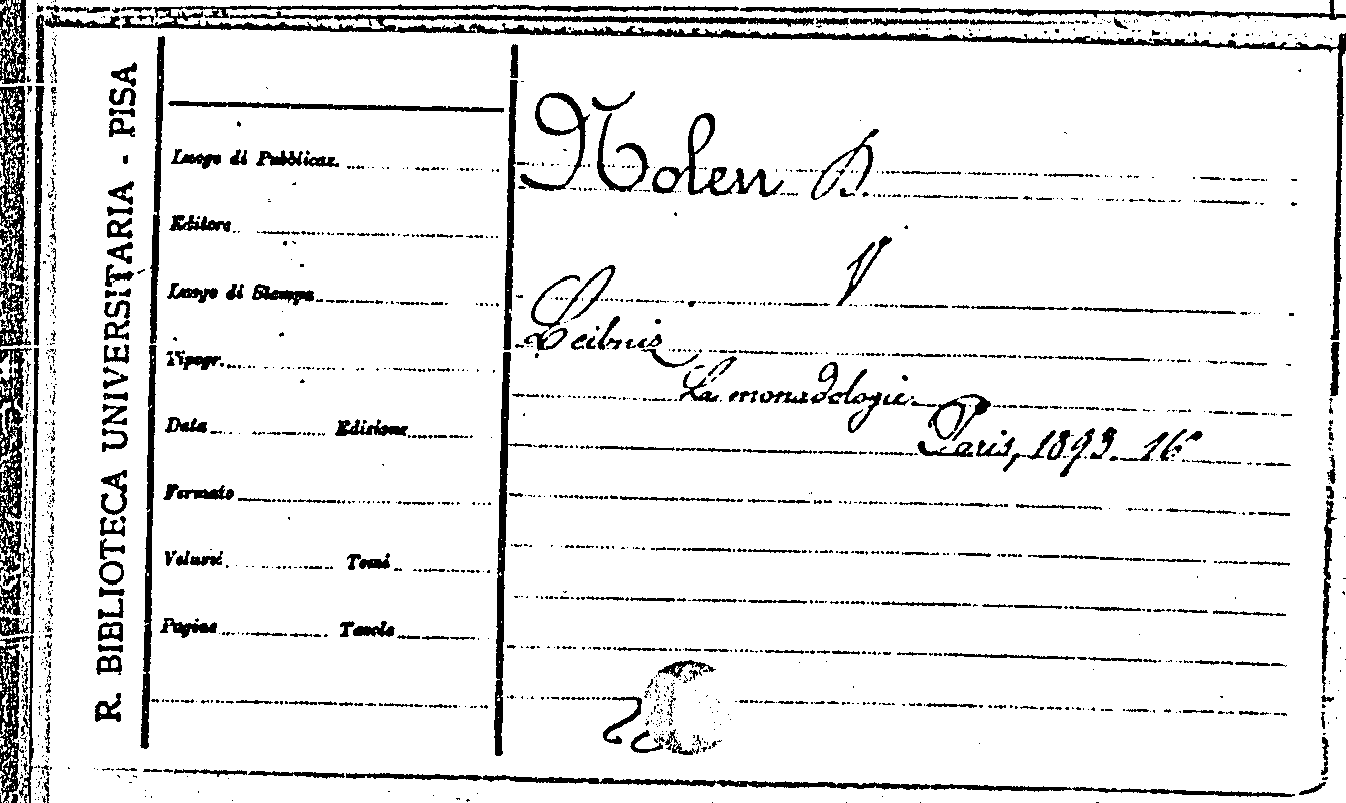 R. BIBLIOTECA UNIVERSITARIA - PISA
Luogo di Pubblicaz.
Editore
Luogo di Stampa
Tipogr.
Data Edizione
Formato
Volumi Tomi
Pagine Tavole
Nolen D.
V
Leibniz
La monadologie.
Paris, 1893. 16°